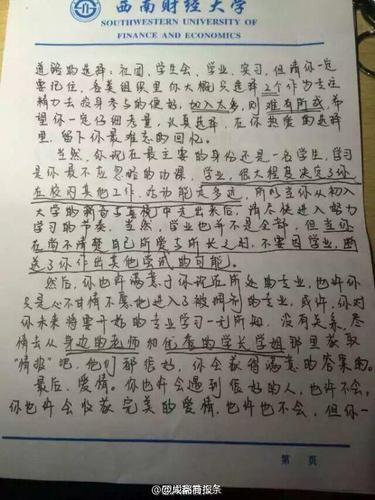 西南财经大学
SOUTHWESTERN UNIVERSITY OF
FINANCE AND ECONOMICS
道路的选择：社团、学生会、学业、实习，但请你一定
要记住，各类组织里你大概只选择2个作为专注
精力去投身才多的便好，加入太多，则难有所成，希
望你一定仔细考量，认真选择，在你热爱的选择
里，留下你最难忘的回忆。
当然，你现在最主要的身份还是一名学生，学习
是你最不应忽略的功课，学业，很大程度决定了你
在校内其他工作、活动能走多远，所以当你从初入
大学的新奇与喜悦中走出来后，请尽快进入努力
学习的节奏。当然，学业也并不是全部，但当你
在尚不清楚自己所爱与所长之时，不要因学业，断
送了你作出其他尝试的可能。
然后，你也许满意于你现在所处的专业，也许你
只是心不甘情不愿地进入了被调剂的专业，或许，你对
你未来将要开始的专业学习一无所知，没有关系，尽
情去从身边的老师和优秀的学长学姐那里获取
“情报”吧，他们都很好，你会获得满意的答案的。
最后，爱情。你也许会遇到很好的人，也许不会，
你也许会收获完美的爱情，也许也不会，但你一
第 页
@成都商报头条